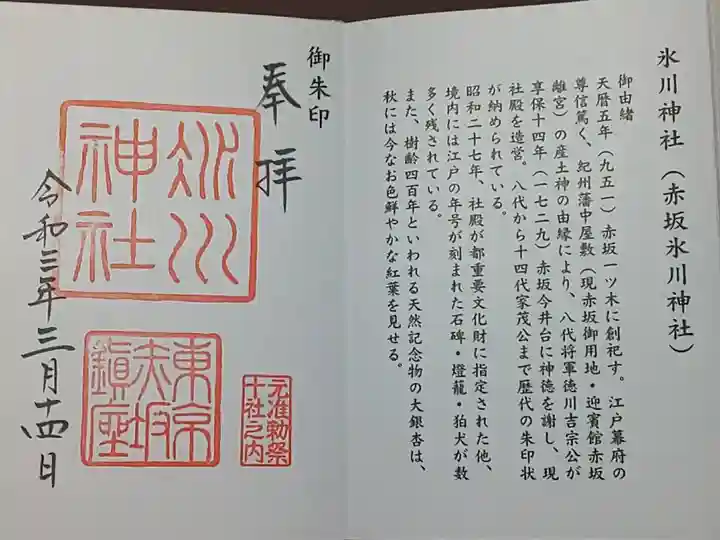 氷川神社（赤坂氷川神社）
御由緒
天暦五年（九五一）赤坂一ツ木に創祀す。江戸幕府の
尊信篤く、紀州藩中屋敷（現赤坂御用地・迎賓館赤坂
離宮）の産土神の由縁により、八代将軍徳川吉宗公が
享保十四年（一七二九）赤坂今井台に神徳を謝し、現
社殿を造営。八代から十四代家茂公まで歴代の朱印状
が納められている。
昭和二十七年、社殿が都重要文化財に指定された他、
境内には江戸の年号が刻まれた石碑・燈籠・狛犬が数
多く残されている。
また、樹齢四百年といわれる天然記念物の大銀杏は、
秋には今なお色鮮やかな紅葉を見せる。
御朱印
奉拝
氷川
神社
元准勅祭
十社之内
東京
赤坂
鎮座
令和三年三月十四日